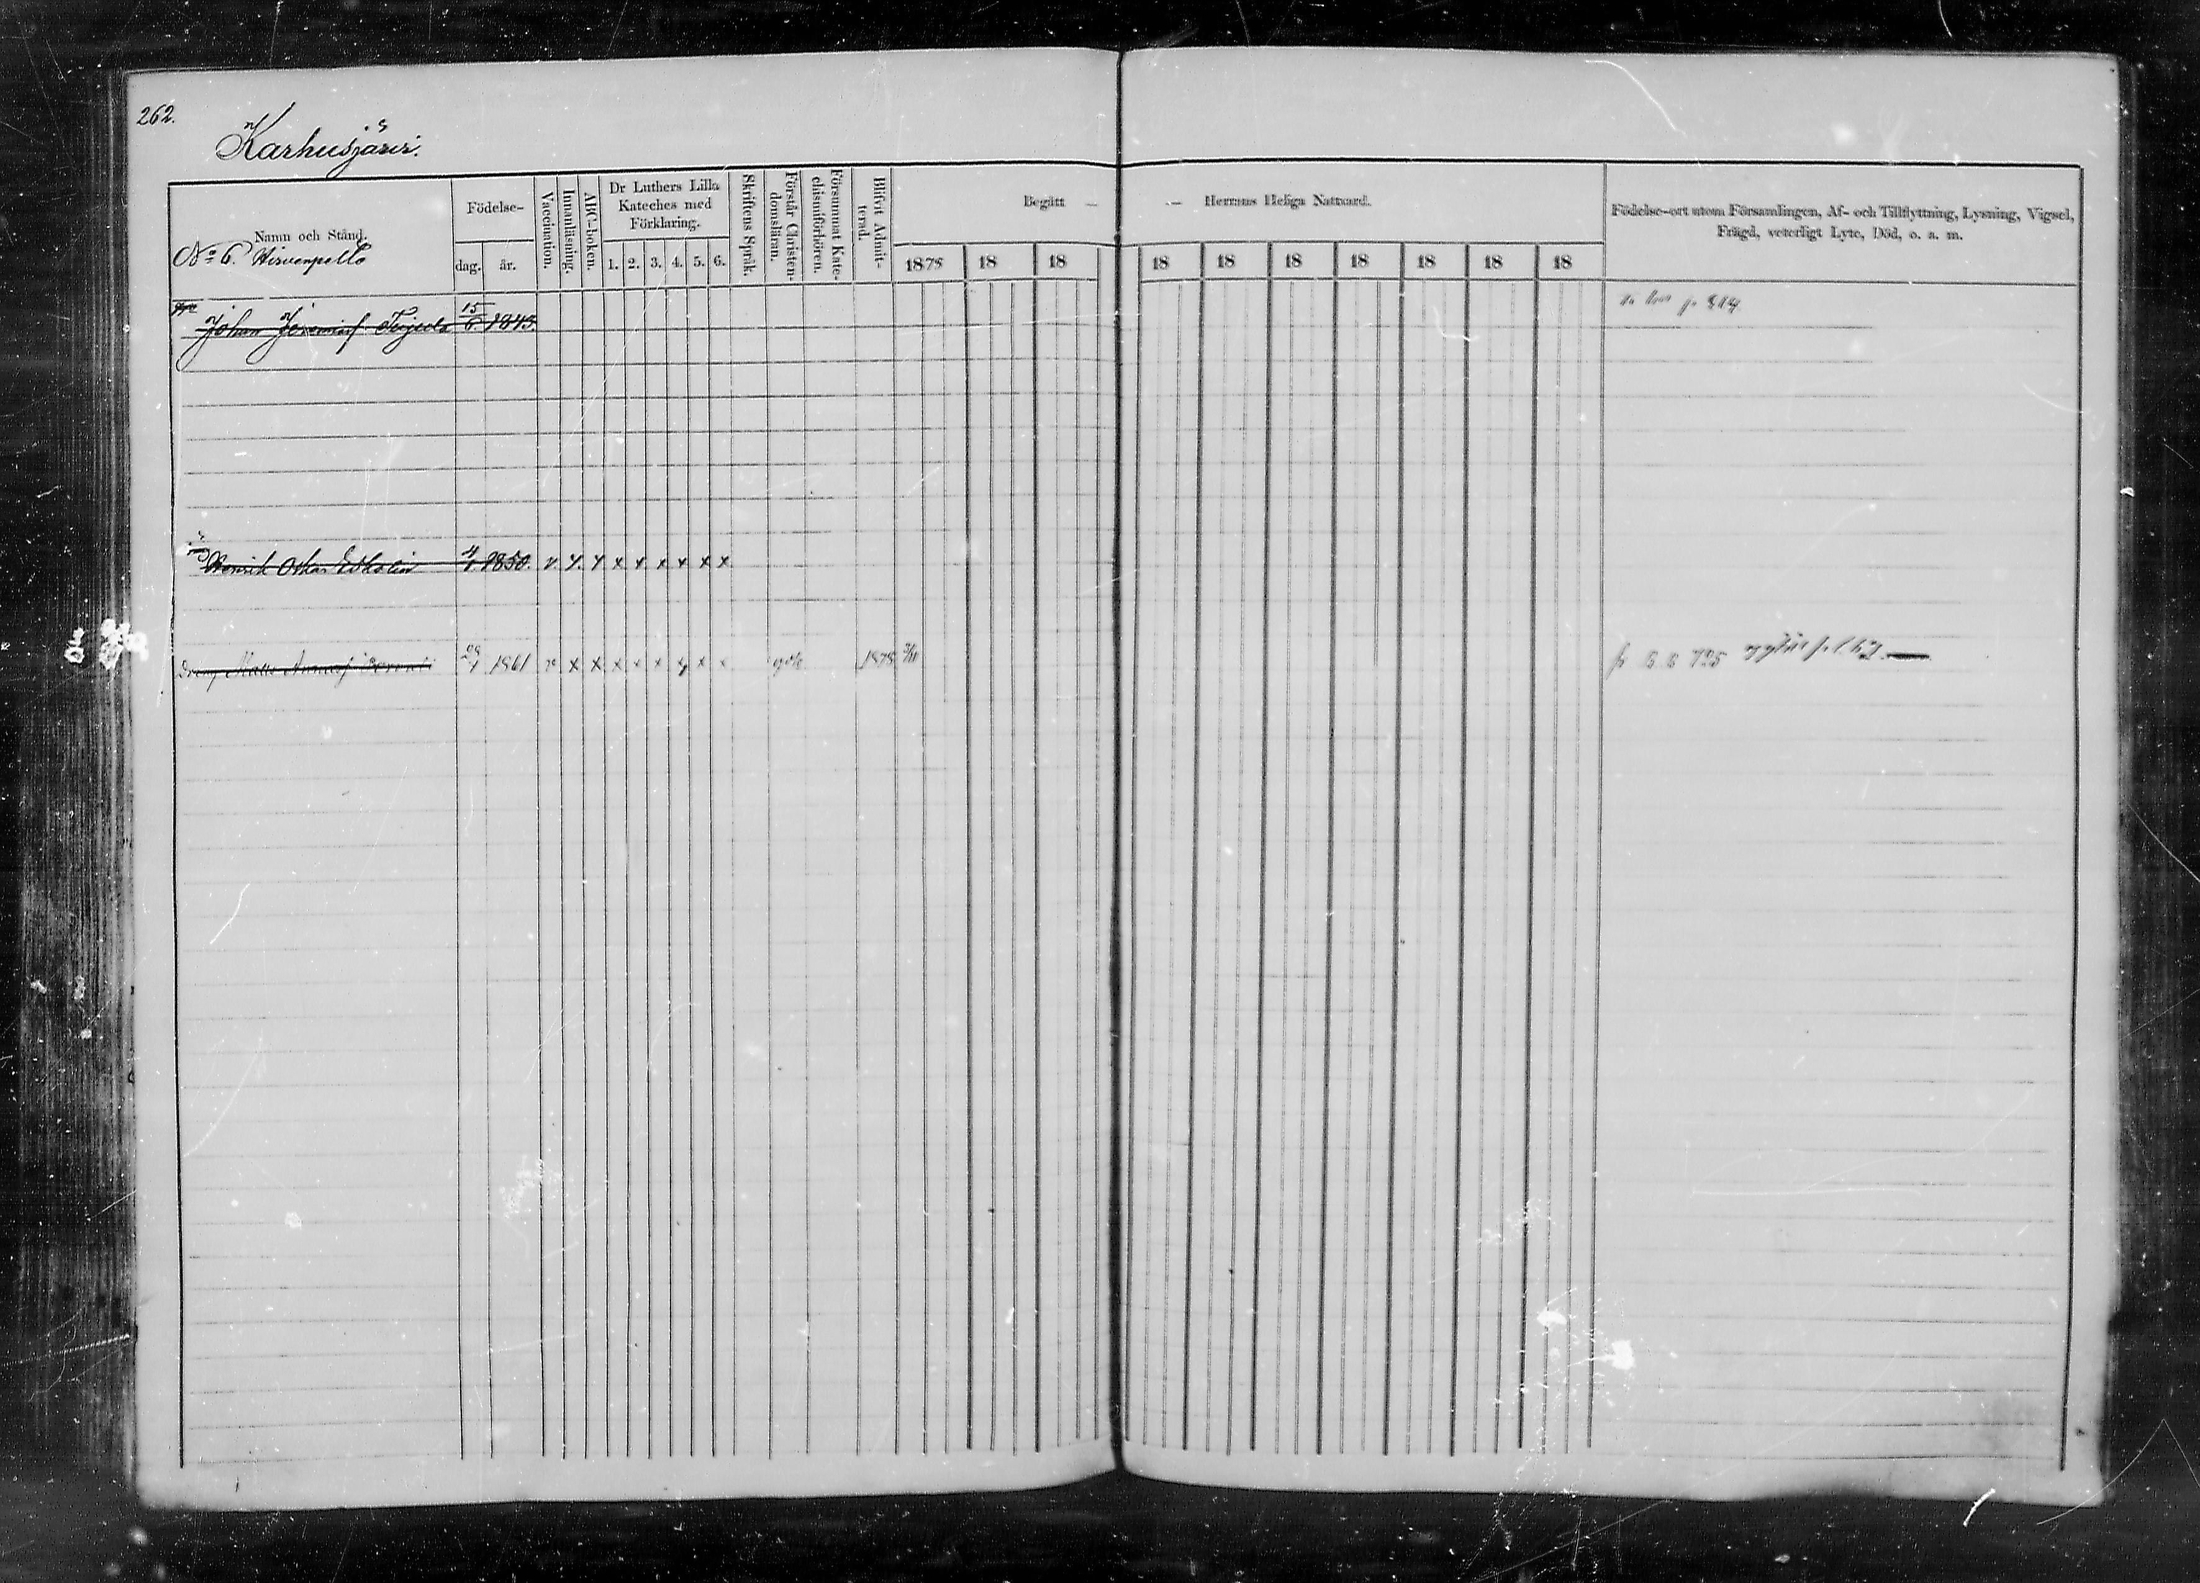 262.
Karhusjärvi.
Namn och Stånd.
No 6. Hirvenpello
Födelse-
dag. år.
Vaccination.
Innanläsning.
ABC-boken.
Dr Luthers Lilla
Kateches med
Förklaring.
1. 2. 3. 4. 5. 6.
Skriftens Språk.
Förstår Christen-
domsläran.
Försummat Kate-
chismiförhören.
Blifvit Admit-
terad.
Begått — — Herrans Heliga Nattvard.
1875 18 18 18 18 18 18 18 18 18
Födelse-ort utom Församlingen, Af- och Tillflyttning, Lysning, Vigsel,
Frägd, veterligt Lyte, Död, o. a. m.
Johan Jeremiasf 15/6 1843.
Henrik Oskar Edholm 4/1 1850. v. x x x x x x x x
Matts 1861 v x x x x x x x 1878